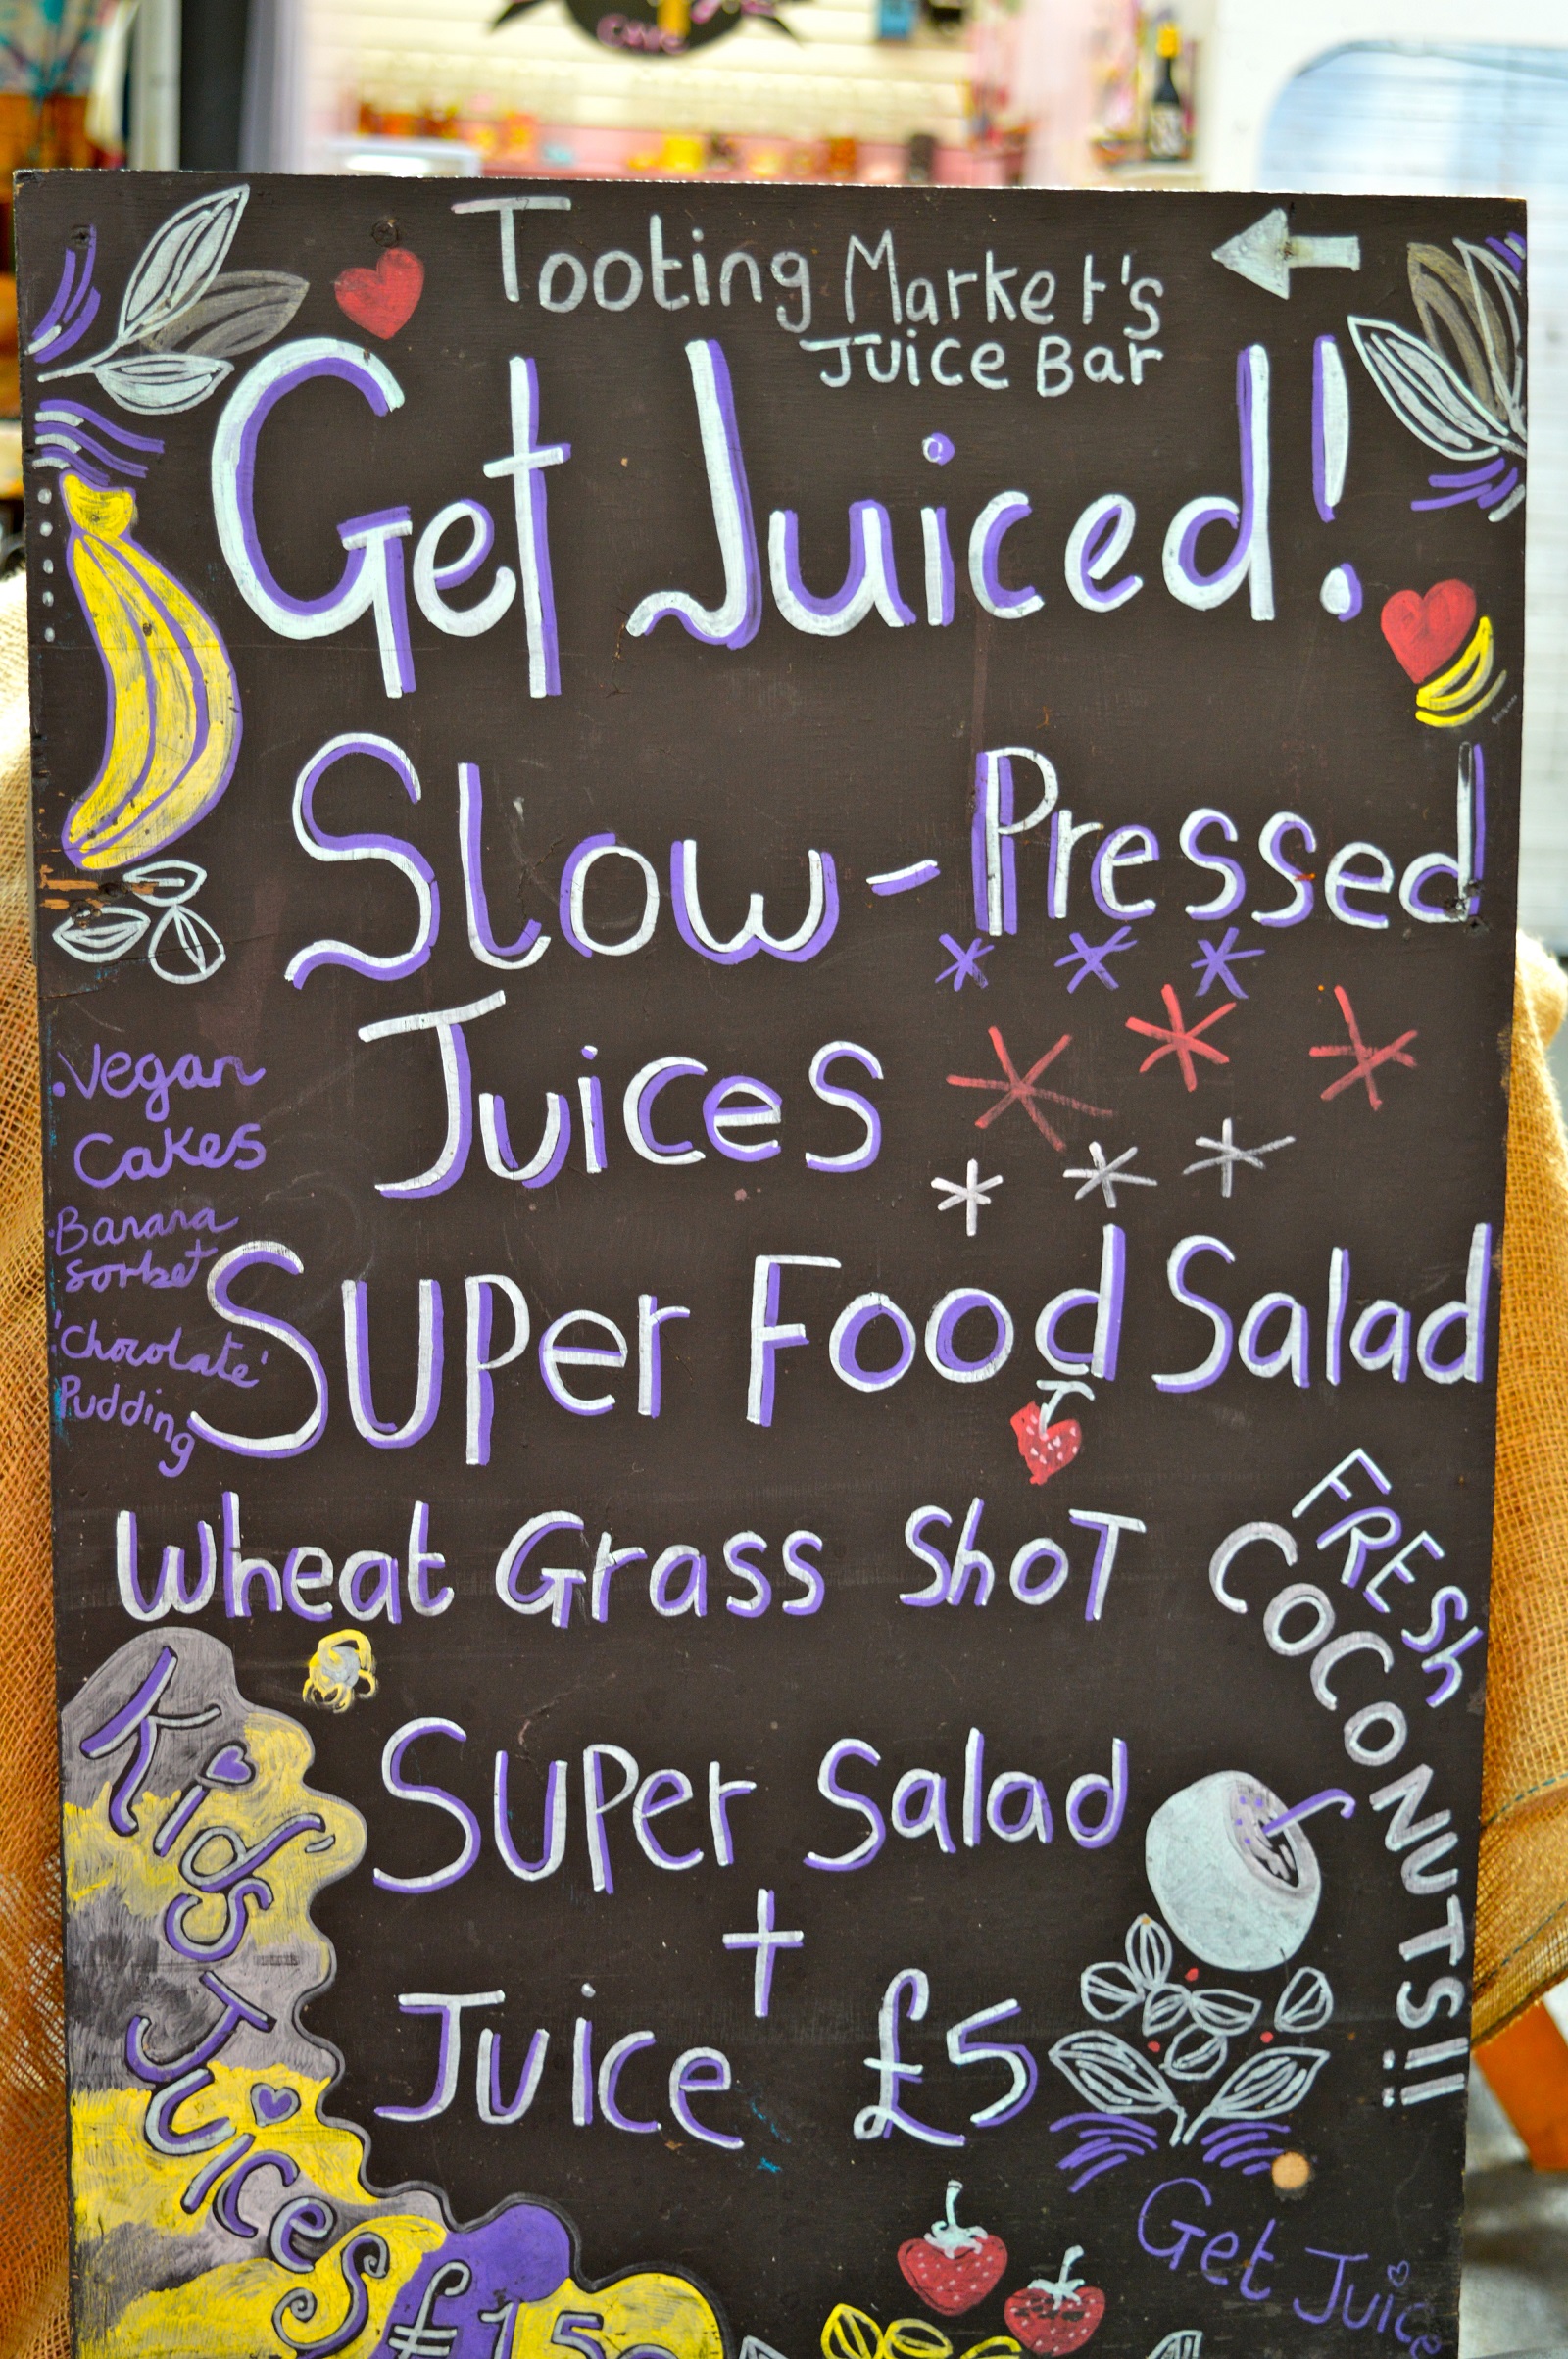 cafe
Tooting Market's
Juice Bar
Get Juiced!
Slow-Pressed
Juices
• Vegan
Cakes
• Banana
sorbet
'Chocolate'
Pudding
Super Food Salad
Wheat Grass Shot
FRESh
COCONUTS!!
Super Salad
+
Juice £5
Kid's
Juices
£1.50
Get Juice